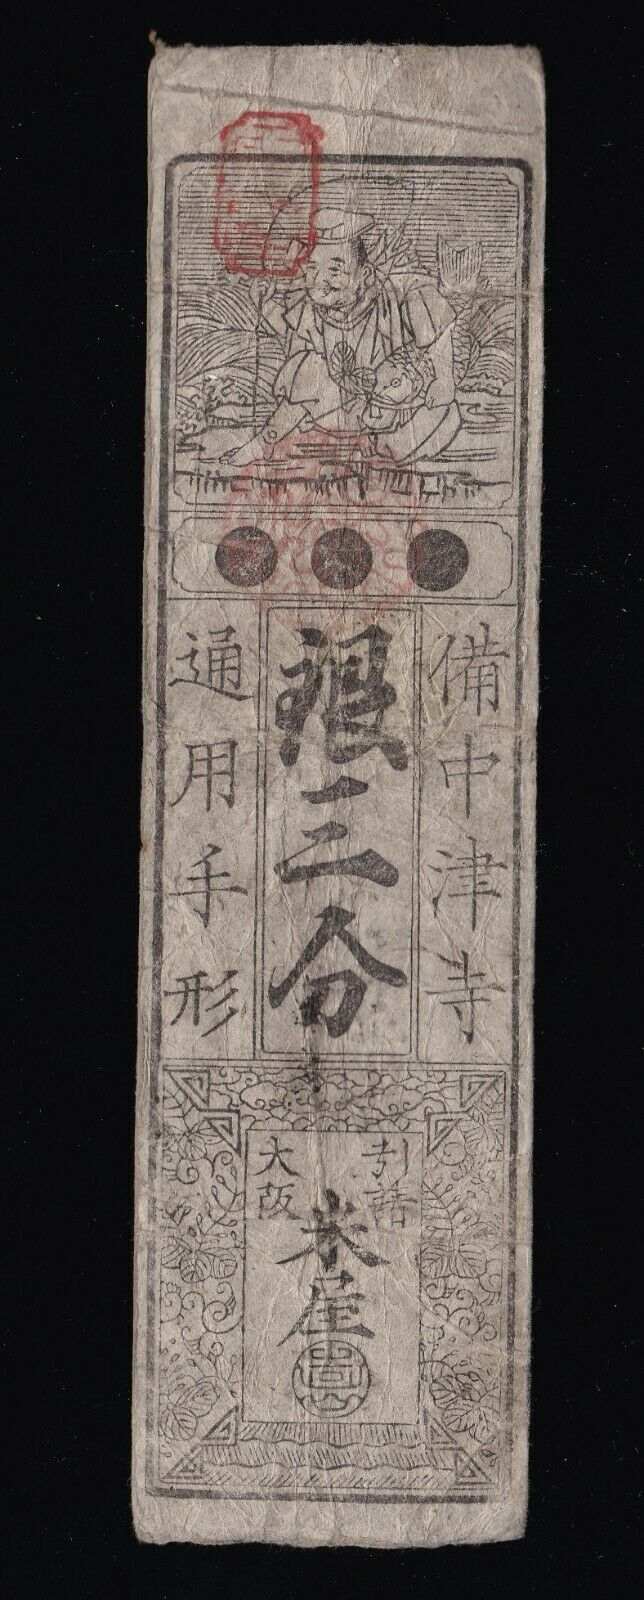 備中津寺
銀三分
通用手形
引請
大阪
米屋